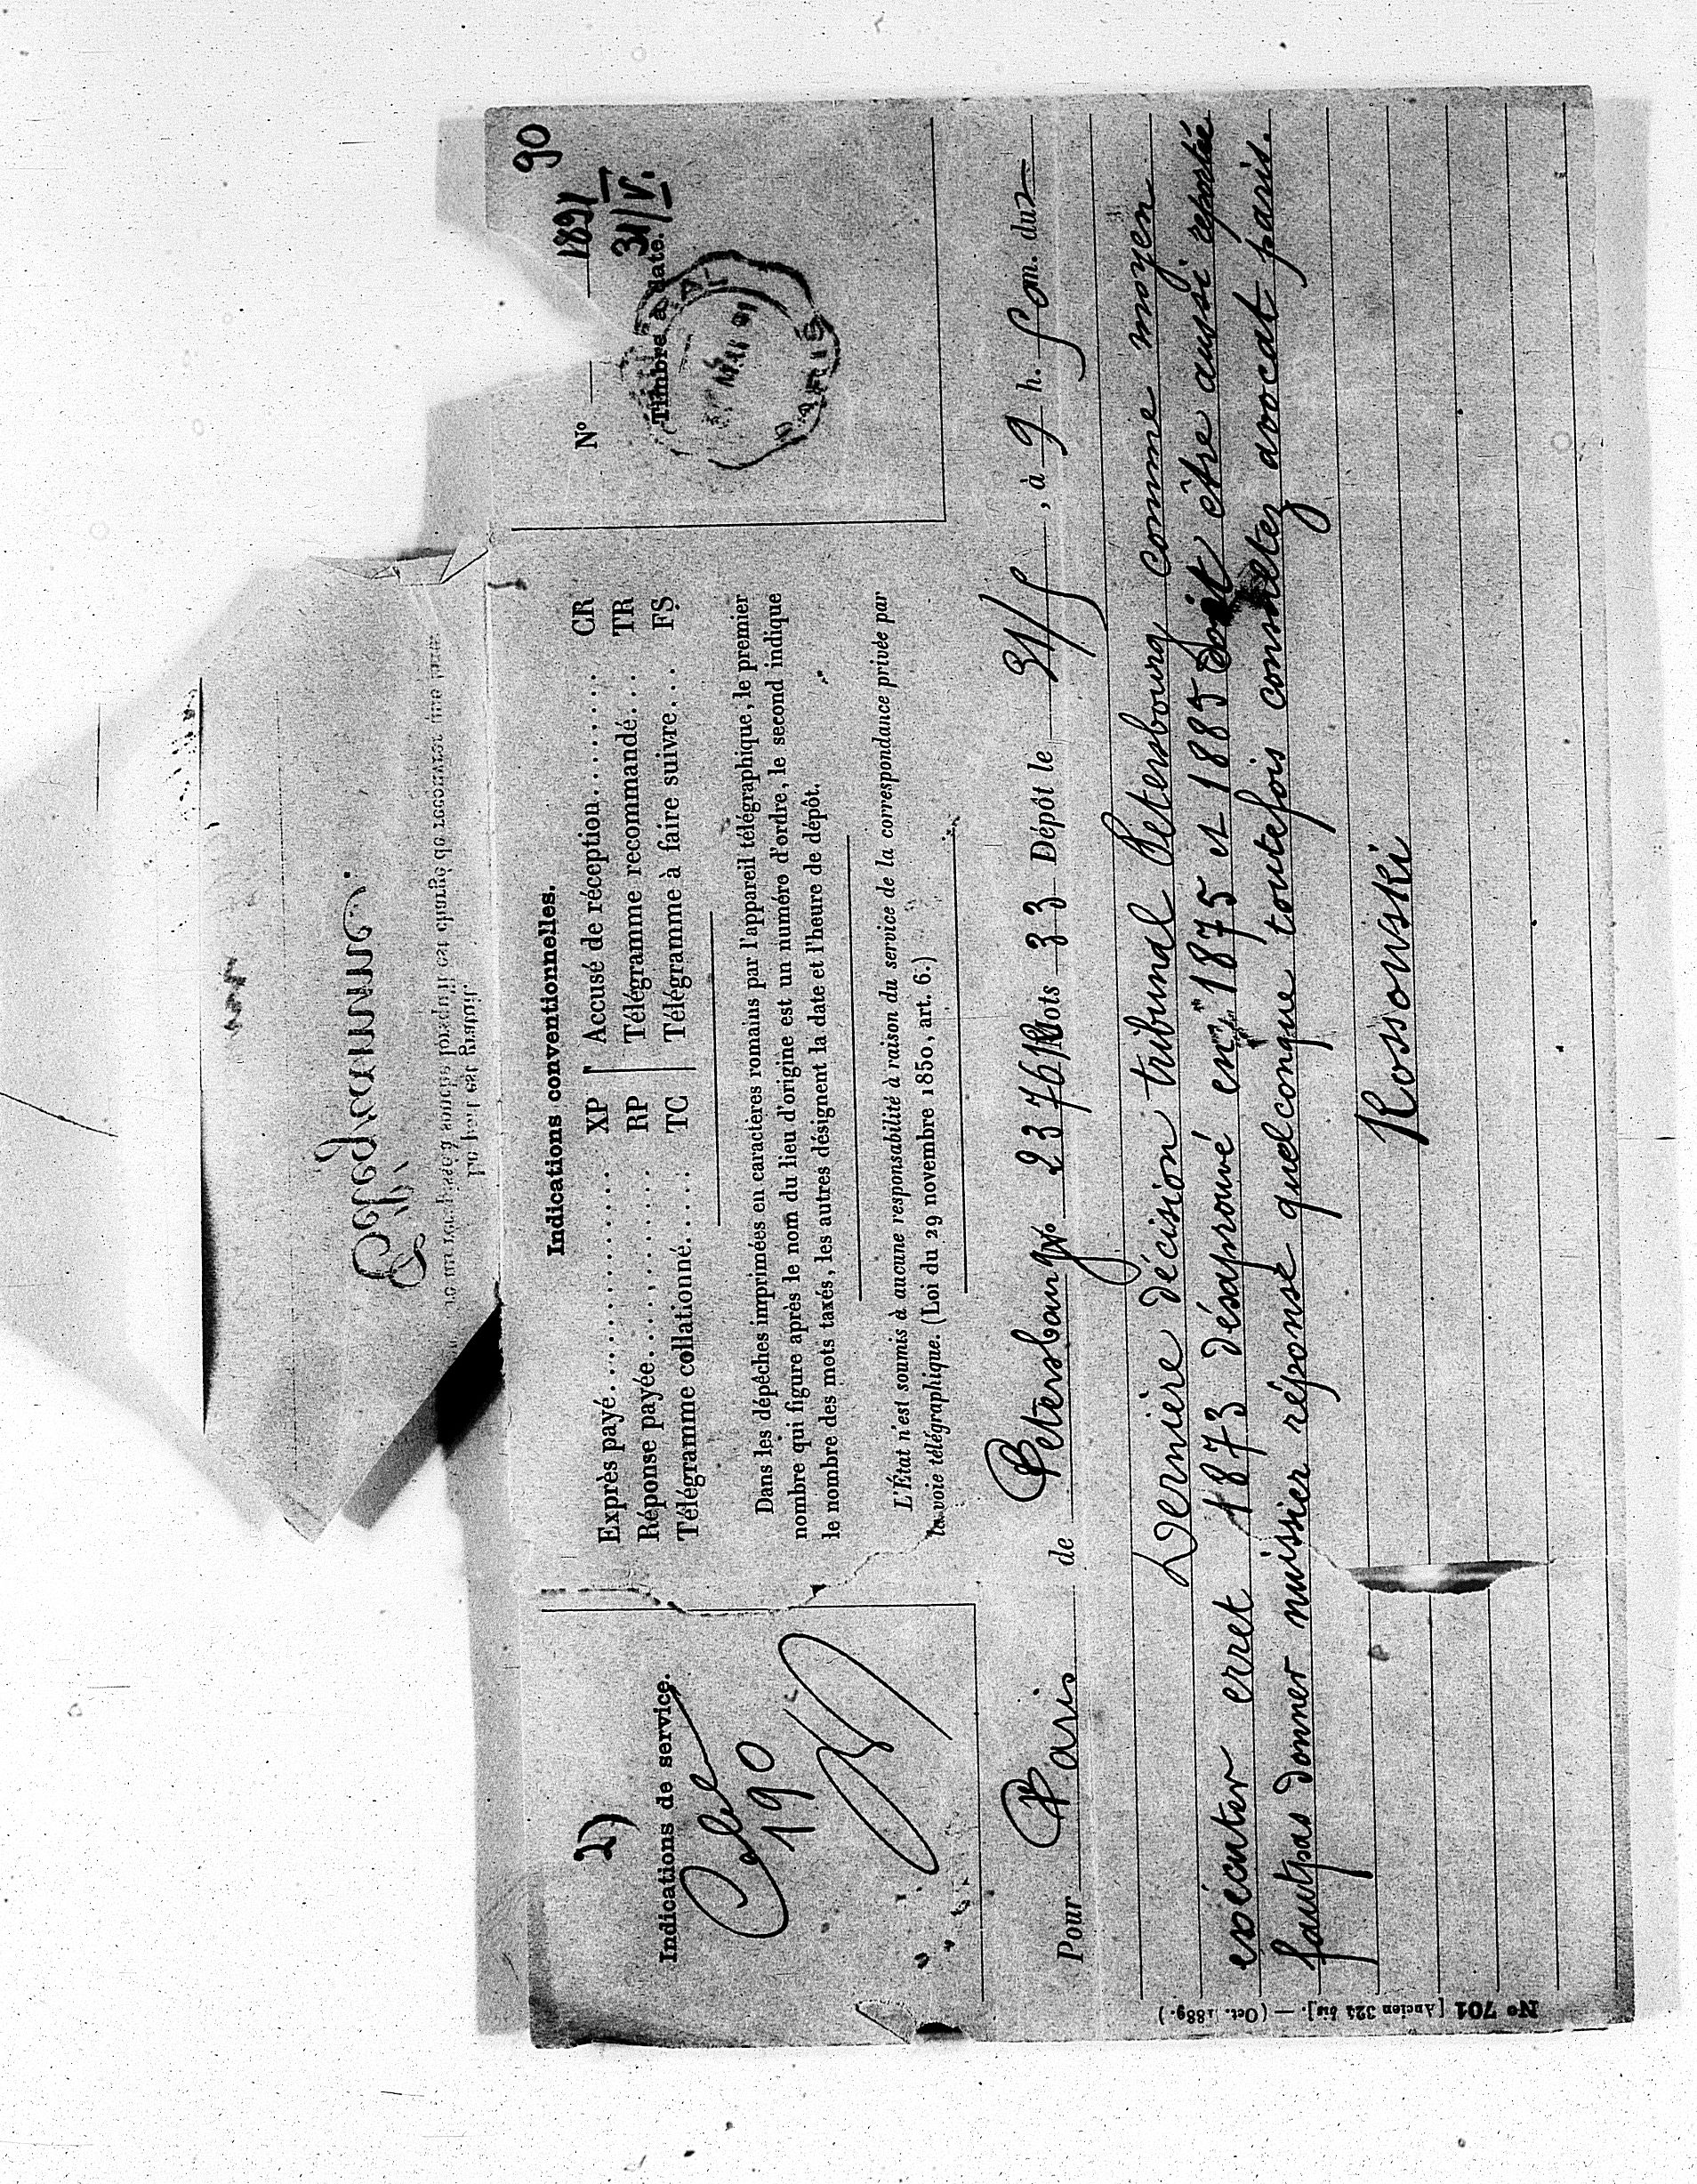 90
1891
31/V.
N°
Timbre à date.
PARIS
2)
Indications de service.
190
Indications conventionnelles.
Exprès payé............ XP | Accusé de réception......... CR
Réponse payée.......... RP | Télégramme recommandé... TR
Télégramme collationné..... TC | Télégramme à faire suivre... FS
Dans les dépêches imprimées en caractères romains par l'appareil télégraphique, le premier
nombre qui figure après le nom du lieu d'origine est un numéro d'ordre, le second indique
le nombre des mots taxés, les autres désignent la date et l'heure de dépôt.
L'État n'est soumis à aucune responsabilité à raison du service de la correspondance privée par
la voie télégraphique. (Loi du 29 novembre 1850, art. 6.)
Pour Paris de Petersbourg N° Mots 33 Dépôt le 31/5, à 9 h. m. du
Dernière décision tribunal Petersbourg comme moyen
exécuter erret 1873 désaprouvé en 1875 et 1885 doit être aussi
fautpas donner nuissier réponse quelconque toutefois consultez avocat paris.
Kossowski
N° 701 [Ancien 324 bis]. — (Oct. 1889.)
Télégramme.